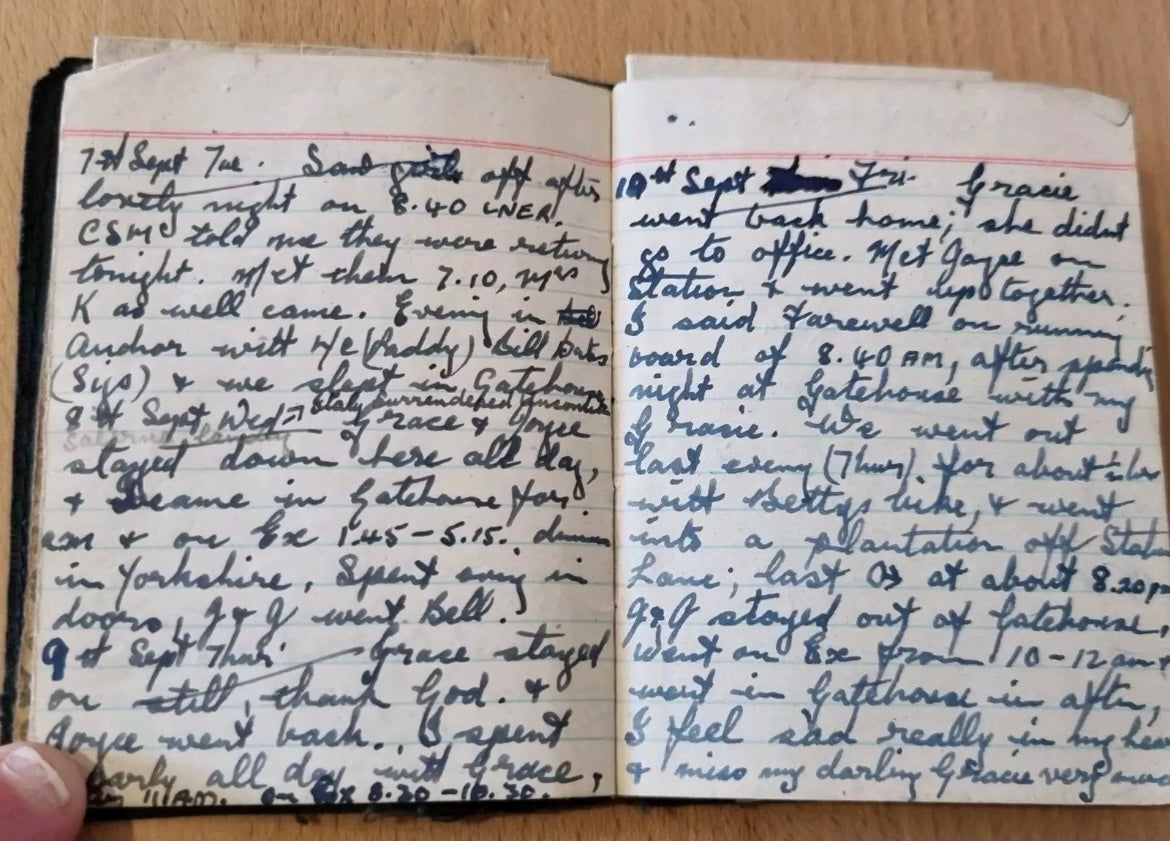 7th Sept Tue. Saw girls off after
lovely night on 8.40 LNER.
CSMC told me they were returng
tonight. M/ct them 7.10, Mrs
K as well came. Evening in
Anchor with H/C (Paddy) Bill
(Sigs) & we slept in Gatehouse
Italy surrendered unconditi
8th Sept Wed Grace & Joyce
Salerno landing
stayed down here all day,
& came in Gatehouse for
am & on Ex 1.45-5.15.
in Yorkshire, Spent eveng in
doors, J & G went Bell.
9th Sept Thurs Grace stayed
on still, thank God. &
Joyce went back. I spent
nearly all day with Grace,
11 A.M. on Ex 8.30-10.30.
10th Sept Fri. Gracie
went back home; she didnt
go to office. M/ct Joyce on
Station & went up together.
I said farewell on running
board of 8.40 AM, after spendg
night at Gatehouse with my
Gracie. We went out
last eveng (Thurs) for about
with Bettys bike, & went
into a plantation off Statn
Lane; last at about 8.20 p
G & J stayed out of Gatehouse,
went on Ex from 10-12 am &
went in Gatehouse in aftn,
I feel sad really in my hea
& miss my darling Gracie very muc